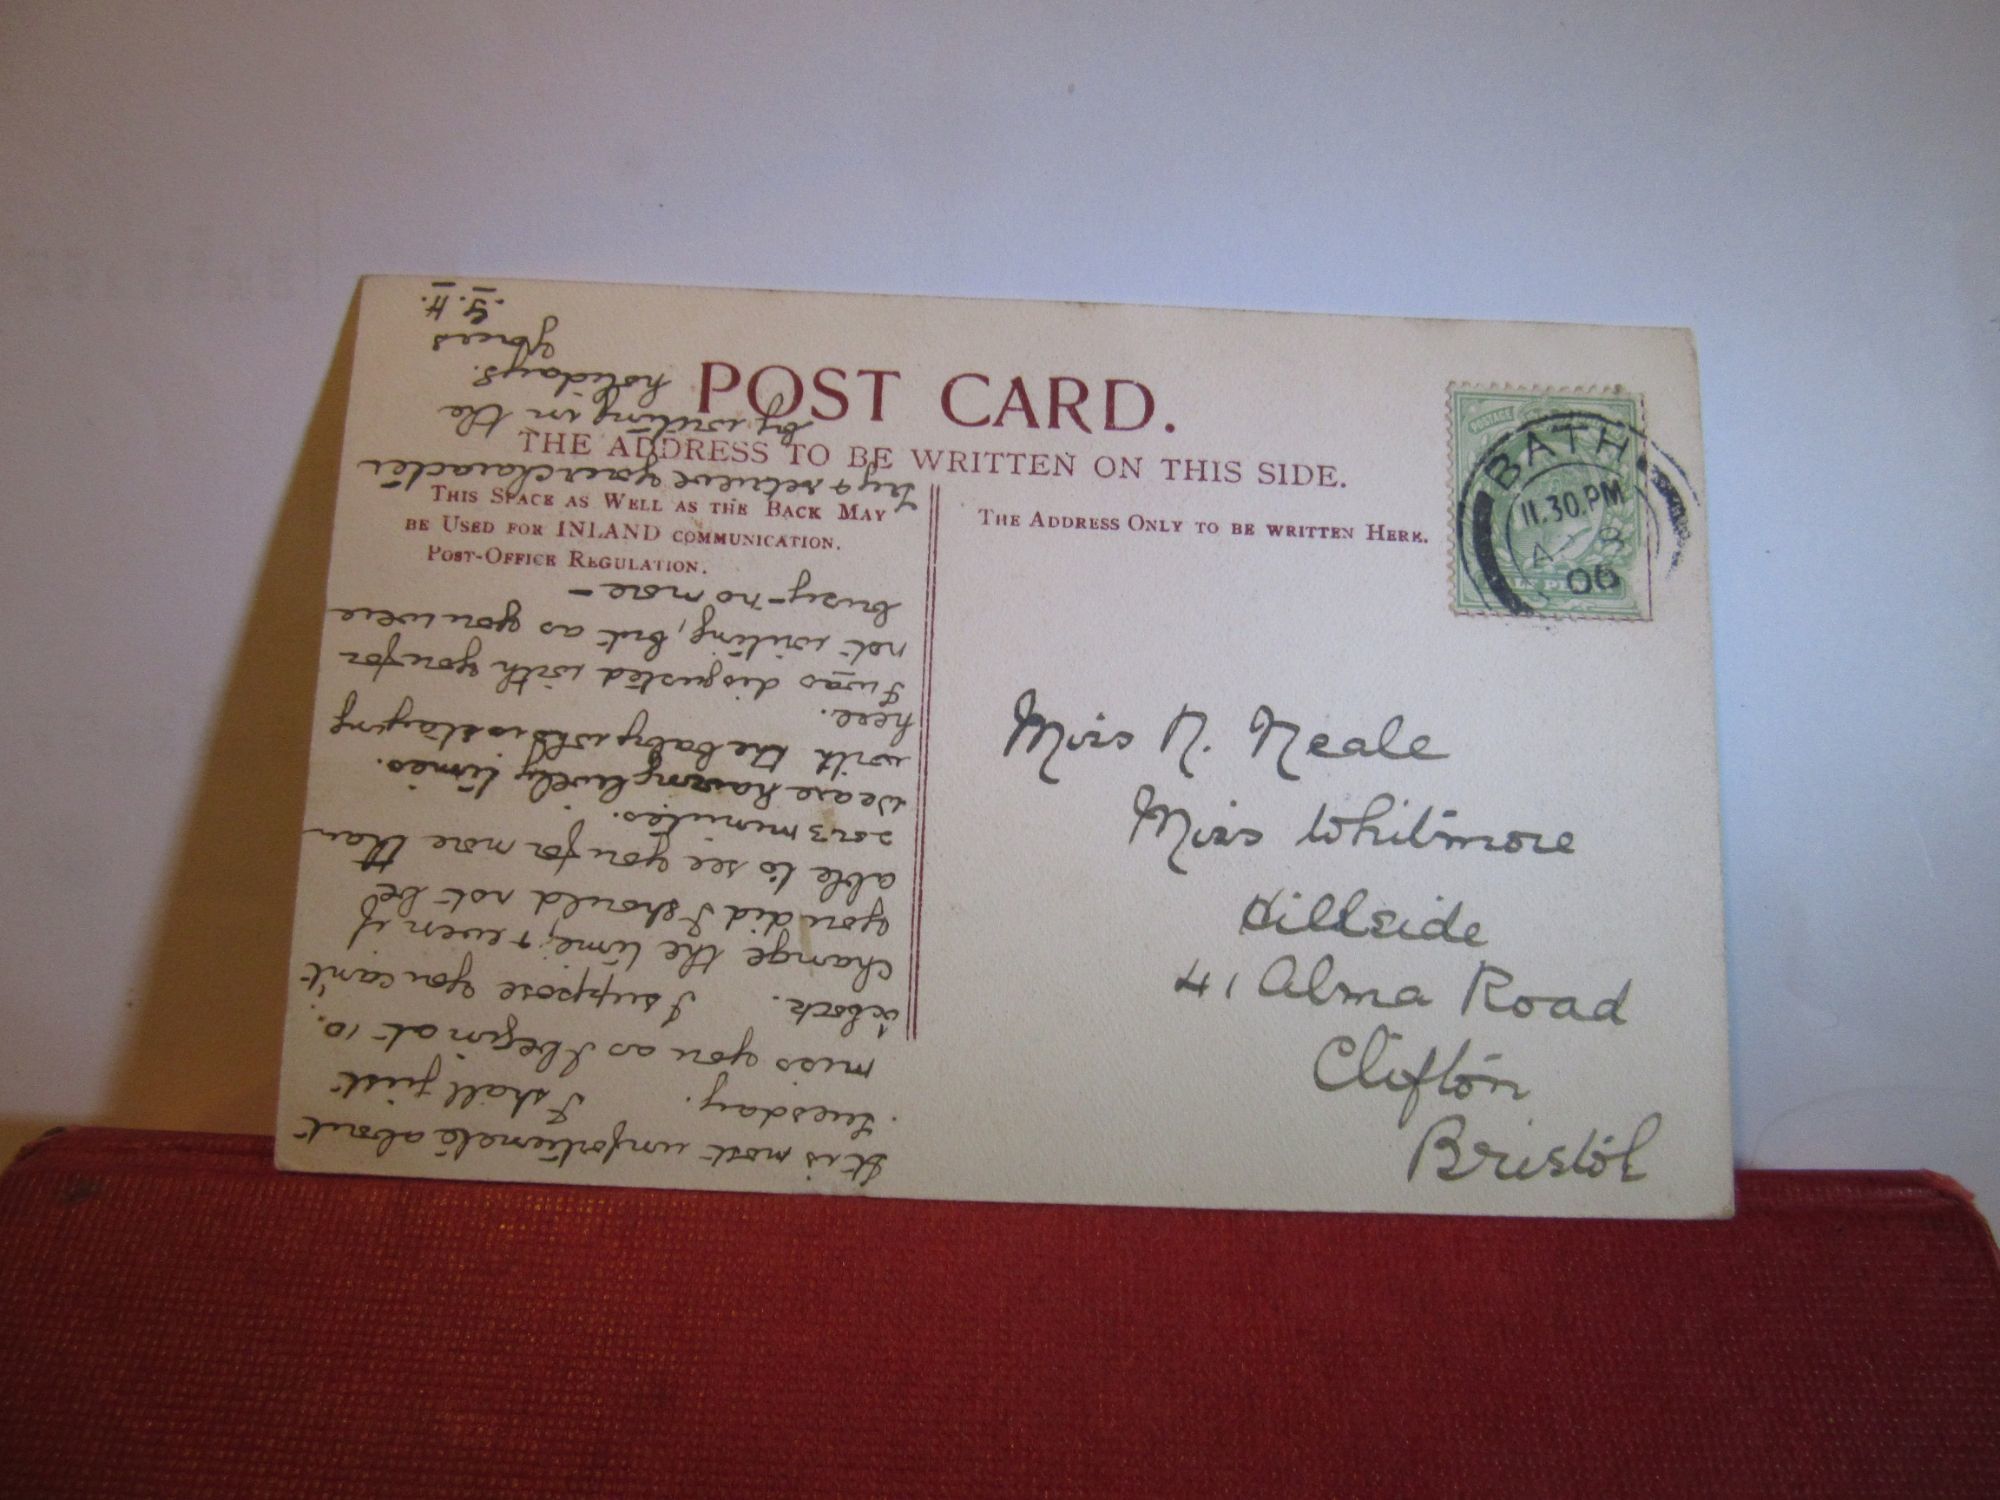 POST CARD.
THE ADDRESS TO BE WRITTEN ON THIS SIDE.
THIS SPACE AS WELL AS THE BACK MAY
BE USED FOR INLAND COMMUNICATION.
POST-OFFICE REGULATION.
THE ADDRESS ONLY TO BE WRITTEN HERE.
POSTAGE
BATH
11.30.PM
06
Miss N. Neale
Miss Whitmore
Hillside
41 Alma Road
Clifton
Bristol
It is most unfortunate about
tuesday. I shall just
miss you as I begin at 10.
o'clock. I suppose you can't
change the time, & even if
you did I should not be
able to see you for more than
2 or 3 minutes.
We are having lively times.
with the baby who is staying
here.
I was disgusted with you for
not writing, but as you were
busy - no more -
Try & retrieve your character
by writing in the
holidays.
Yours
G. H.